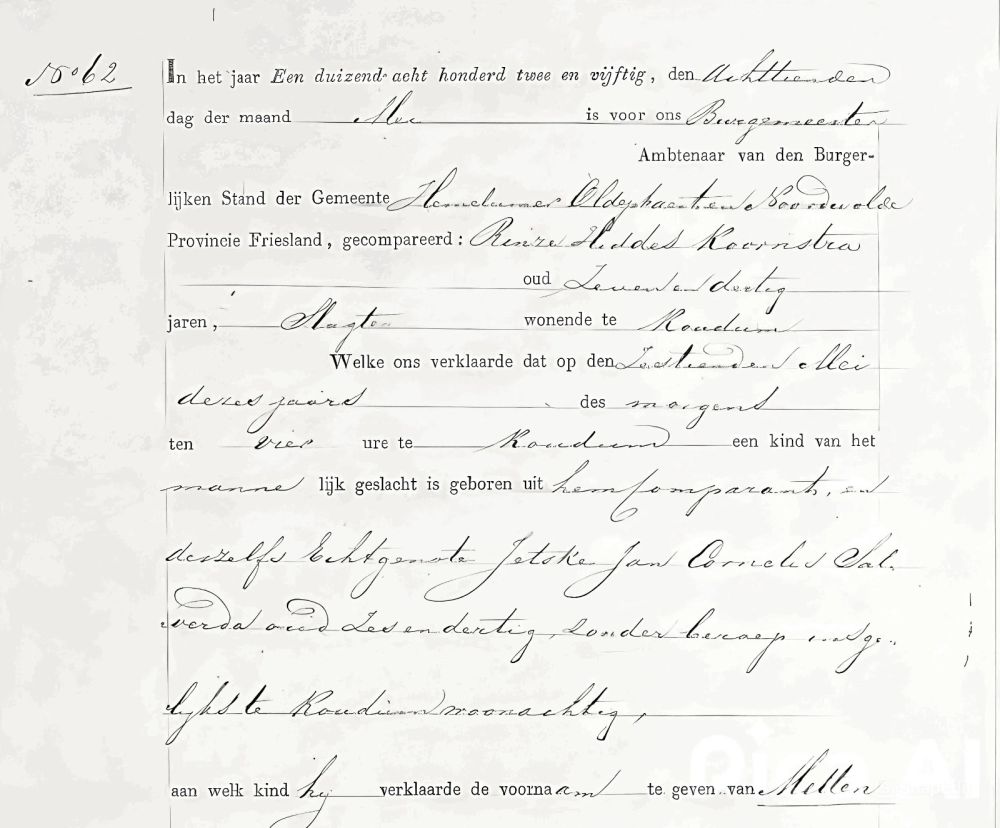 No 62
In het jaar Een duizend acht honderd twee en vijftig, den Achttienden
dag der maand Mei is voor ons Burgemeester
Ambtenaar van den Burger-
lijken Stand der Gemeente Hemelumer Oldephaert en Noordwolde
Provincie Friesland, gecompareerd: Rinze Hiddes Koornstra
oud Zeven en dertig
jaren, Slagter wonende te Koudum
Welke ons verklaarde dat op den Zestienden Mei
dezes jaars des morgens
ten vier ure te Koudum een kind van het
manne lijk geslacht is geboren uit hem Comparant, en
deszelfs Echtgenote Jetske Jan Cornelis Sal-
verda oud Zes en dertig, zonder beroep insge-
lyks te Koudum woonachtig,
aan welk kind hy verklaarde de voornaam te geven van Melle